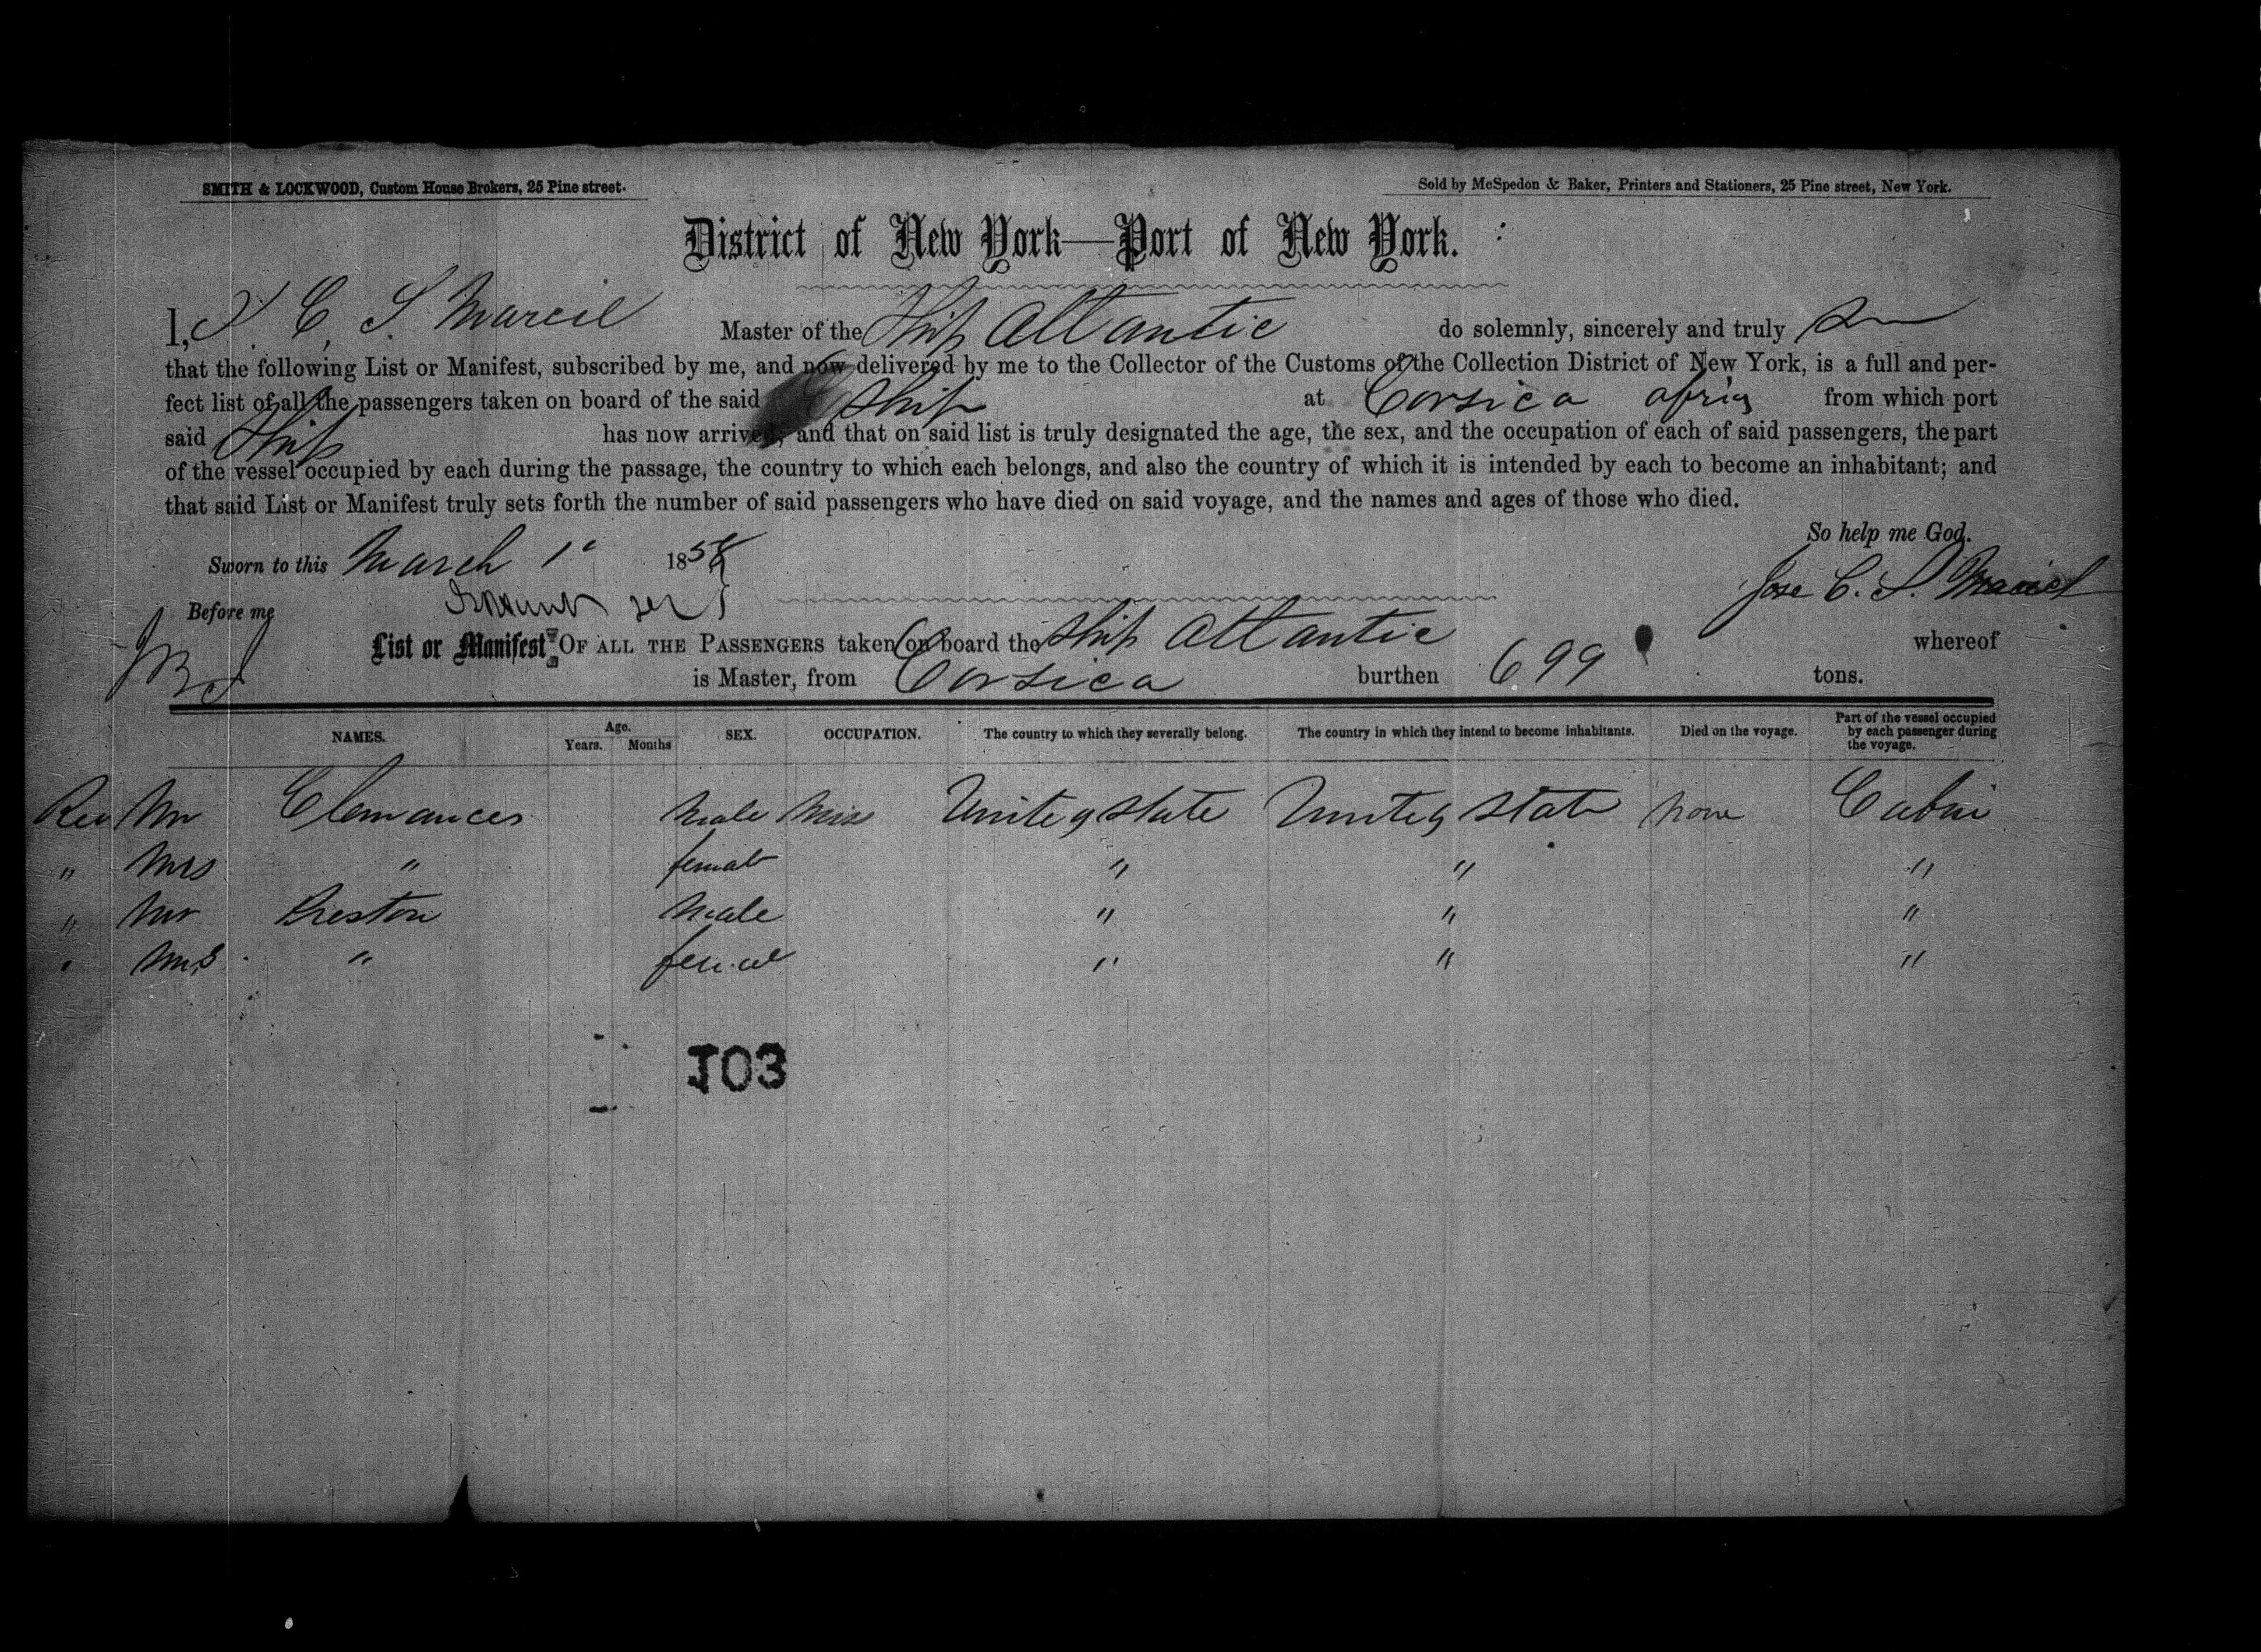 SMITH & LOCKWOOD, Custom House Brokers, 25 Pine street.
Sold by McSpedon & Baker, Printers and Stationers, 25 Pine street, New York.
District of New York—Port of New York.
I, J. C. S. Marcil Master of the Ship Atlantic do solemnly, sincerely and truly
that the following List or Manifest, subscribed by me, and now delivered by me to the Collector of the Customs of the Collection District of New York, is a full and per-
fect list of all the passengers taken on board of the said Ship at Corsica from which port
said Ship has now arrived; and that on said list is truly designated the age, the sex, and the occupation of each of said passengers, the part
of the vessel occupied by each during the passage, the country to which each belongs, and also the country of which it is intended by each to become an inhabitant; and
that said List or Manifest truly sets forth the number of said passengers who have died on said voyage, and the names and ages of those who died.
So help me God.
Sworn to this March 1" 1858
Jose C. S. Maciel
Before me
List or Manifest OF ALL THE PASSENGERS taken on board the Ship Atlantic whereof
is Master, from Corsica burthen 699 tons.
NAMES. Age. Years. Months SEX. OCCUPATION. The country to which they severally belong. The country in which they intend to become inhabitants. Died on the voyage. Part of the vessel occupied by each passenger during the voyage.
Rev Mr Clemances Male Miss United State United State None Cabin
" Mrs " female " " "
" Mr Preston Male " " "
" Mrs " femal " " "
103